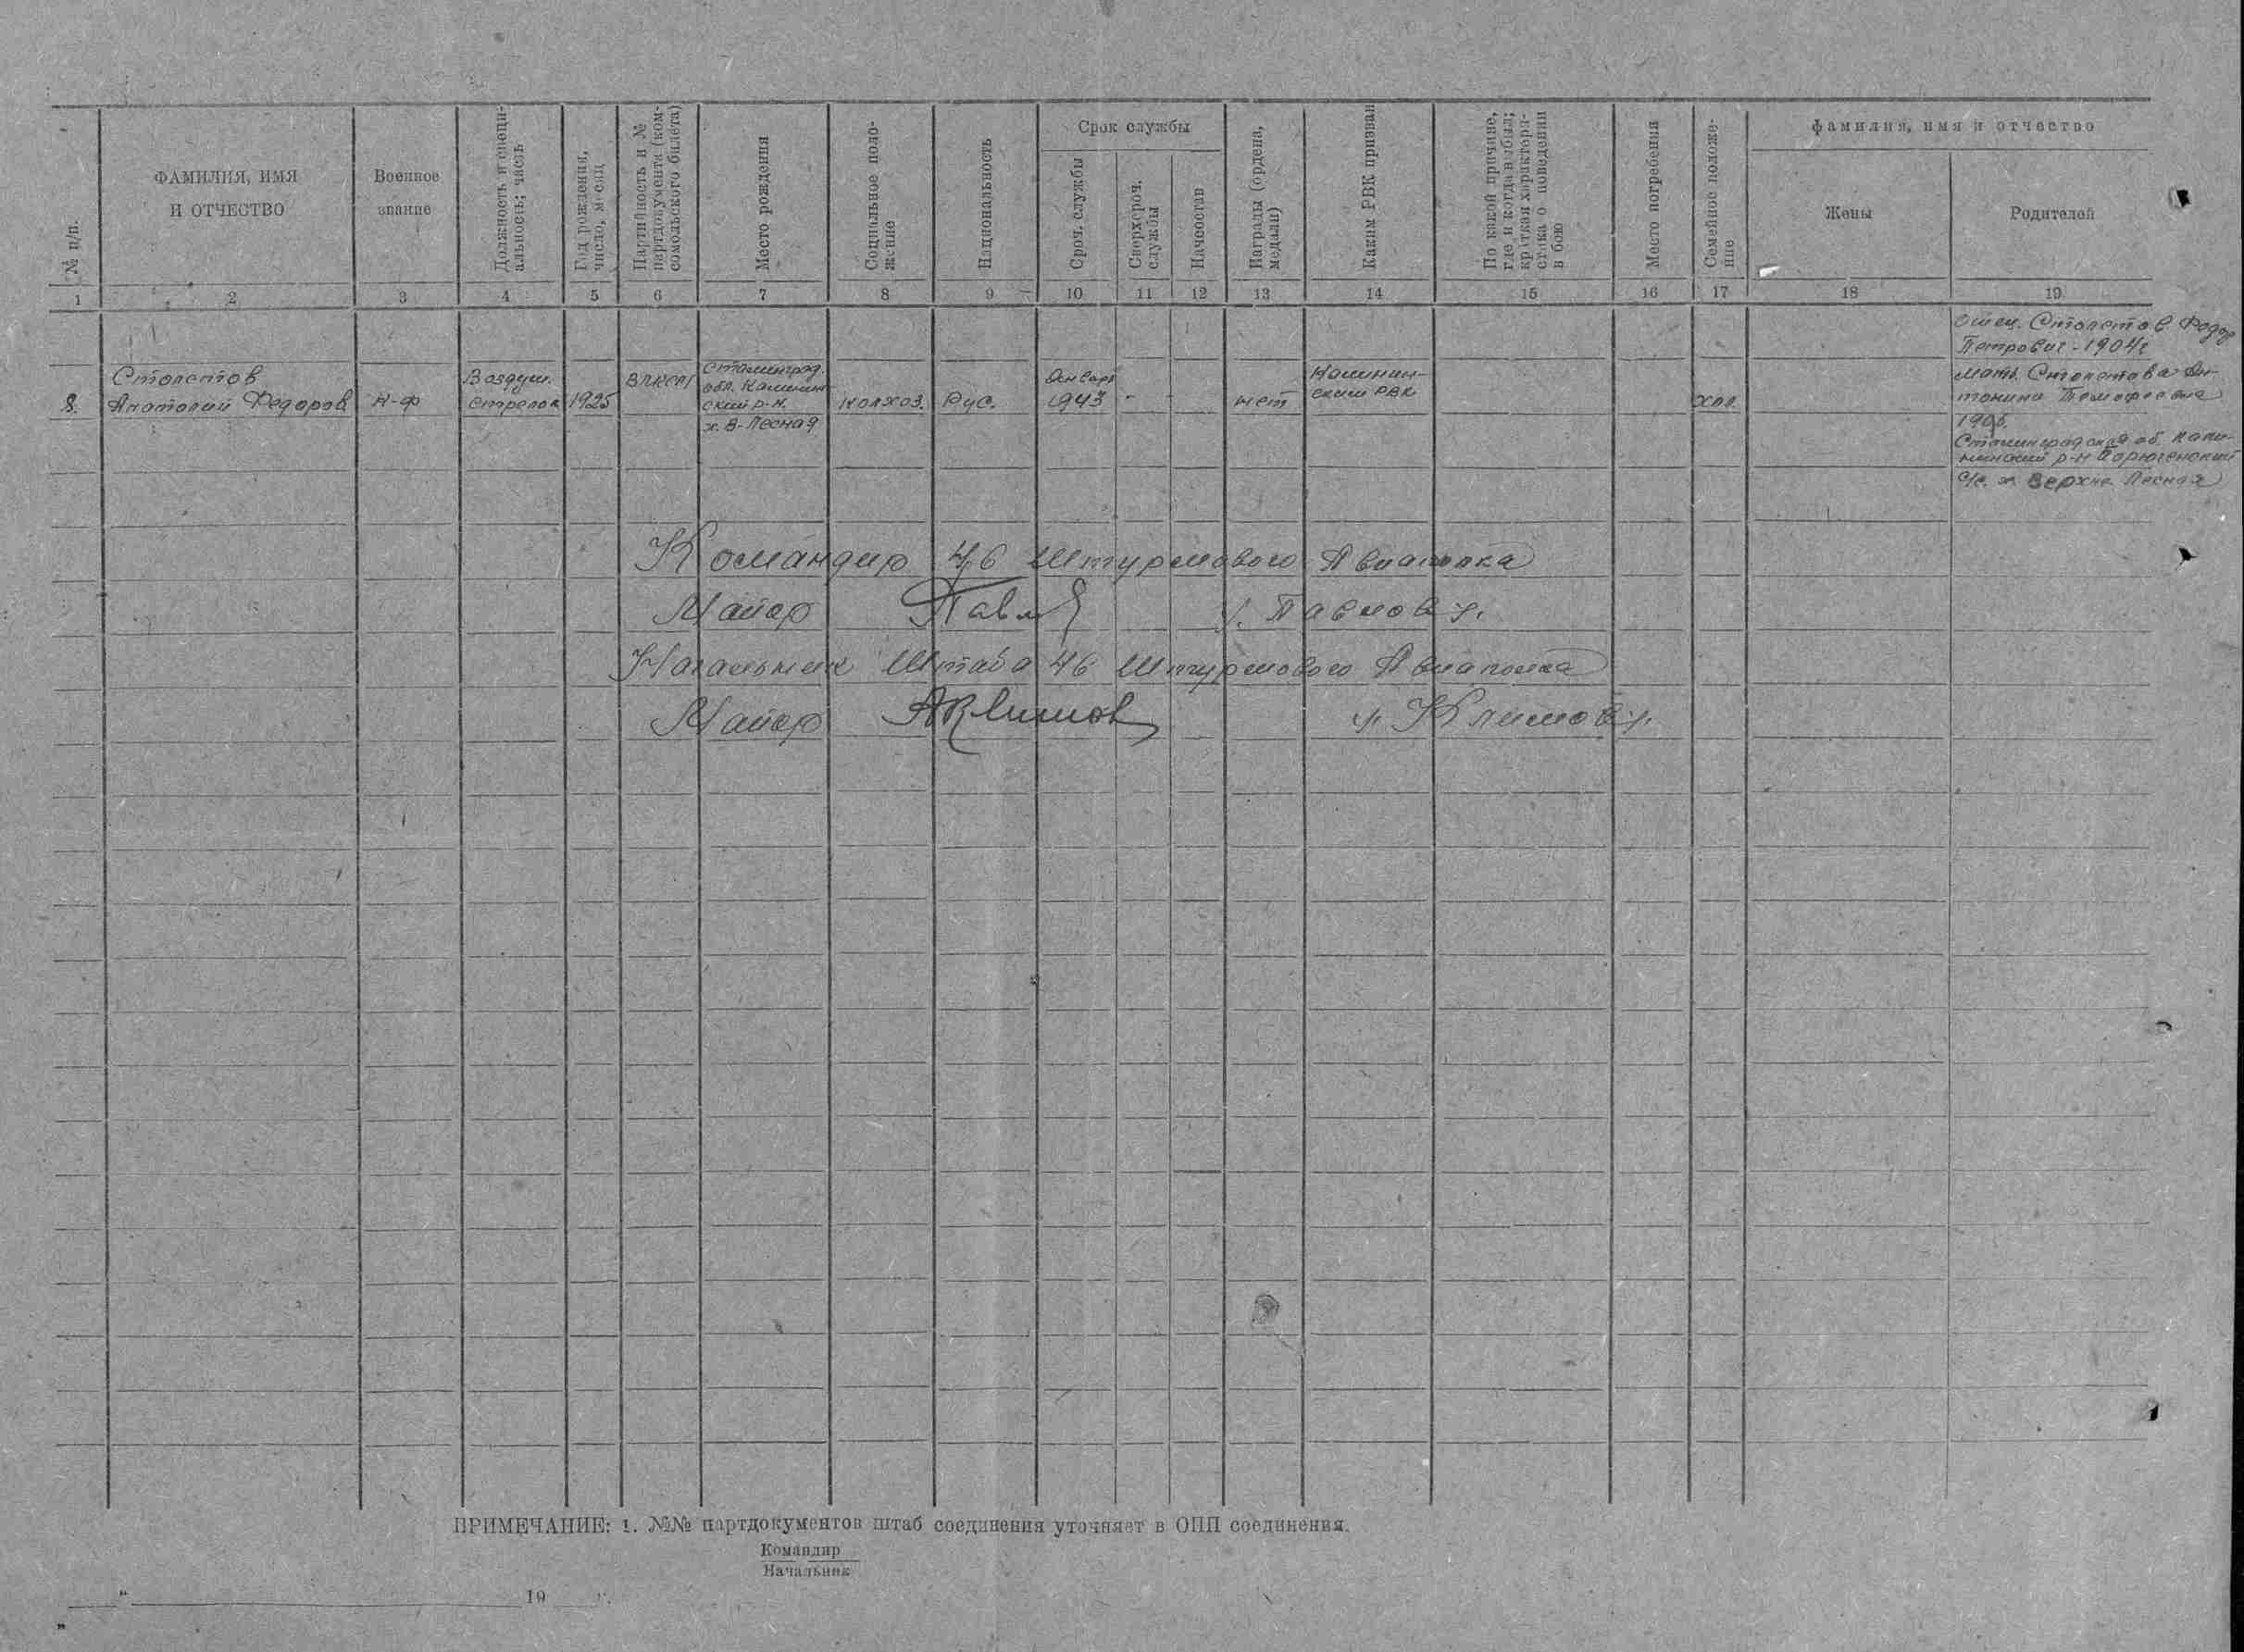 № п/п.
ФАМИЛИЯ, ИМЯ
И ОТЧЕСТВО
Военное
звание
Должность и специ-
альность; часть
Год рождения,
число, месяц
Партийность и №
партдокумента (ком-
сомольского билета)
Место рождения
Социальное поло-
жение
Национальность
Срок службы
Сроч. службы
Сверхсроч.
службы
Начсостав
Награды (ордена,
медали)
Каким РВК призван
По какой причине,
где и когда выбыл;
краткая характери-
стика о поведении
в бою
Место погребения
Семейное положе-
ние
фамилия, имя и отчество
Жены
Родителей
1 2 3 4 5 6 7 8 9 10 11 12 13 14 15 16 17 18 19
8.
Столетов
Анатолий Федоров
к-ф
Воздуш.
стрелок
1925
ВЛКСМ
Сталинград.
обл. Калинин
ский р-н.
х. В-Лесная
колхоз.
Рус.
Январь
1943
- -
нет
Калинин-
ским РВК
хол.
Отец. Столетов Федор
Петрович - 1904г
мать Столетова Ан-
тонина
Сталинградская об. Кали-
нинский р-н
с/с. х. Верхне Лесная
Командир 46 Штурмового Авиаполка
Майор Павлов /. Павлов /.
Начальник Штаба 46 Штурмового Авиаполка
Майор АКлимов /. Климов /.
ПРИМЕЧАНИЕ: 1. №№ партдокументов штаб соединения уточняет в ОПП соединения.
Командир
Начальник
" 19 г.